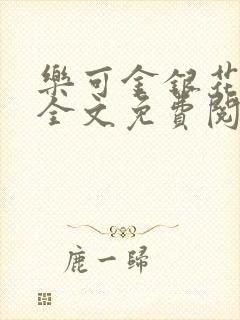 樂可金銀花
全文免費閱
鹿一歸